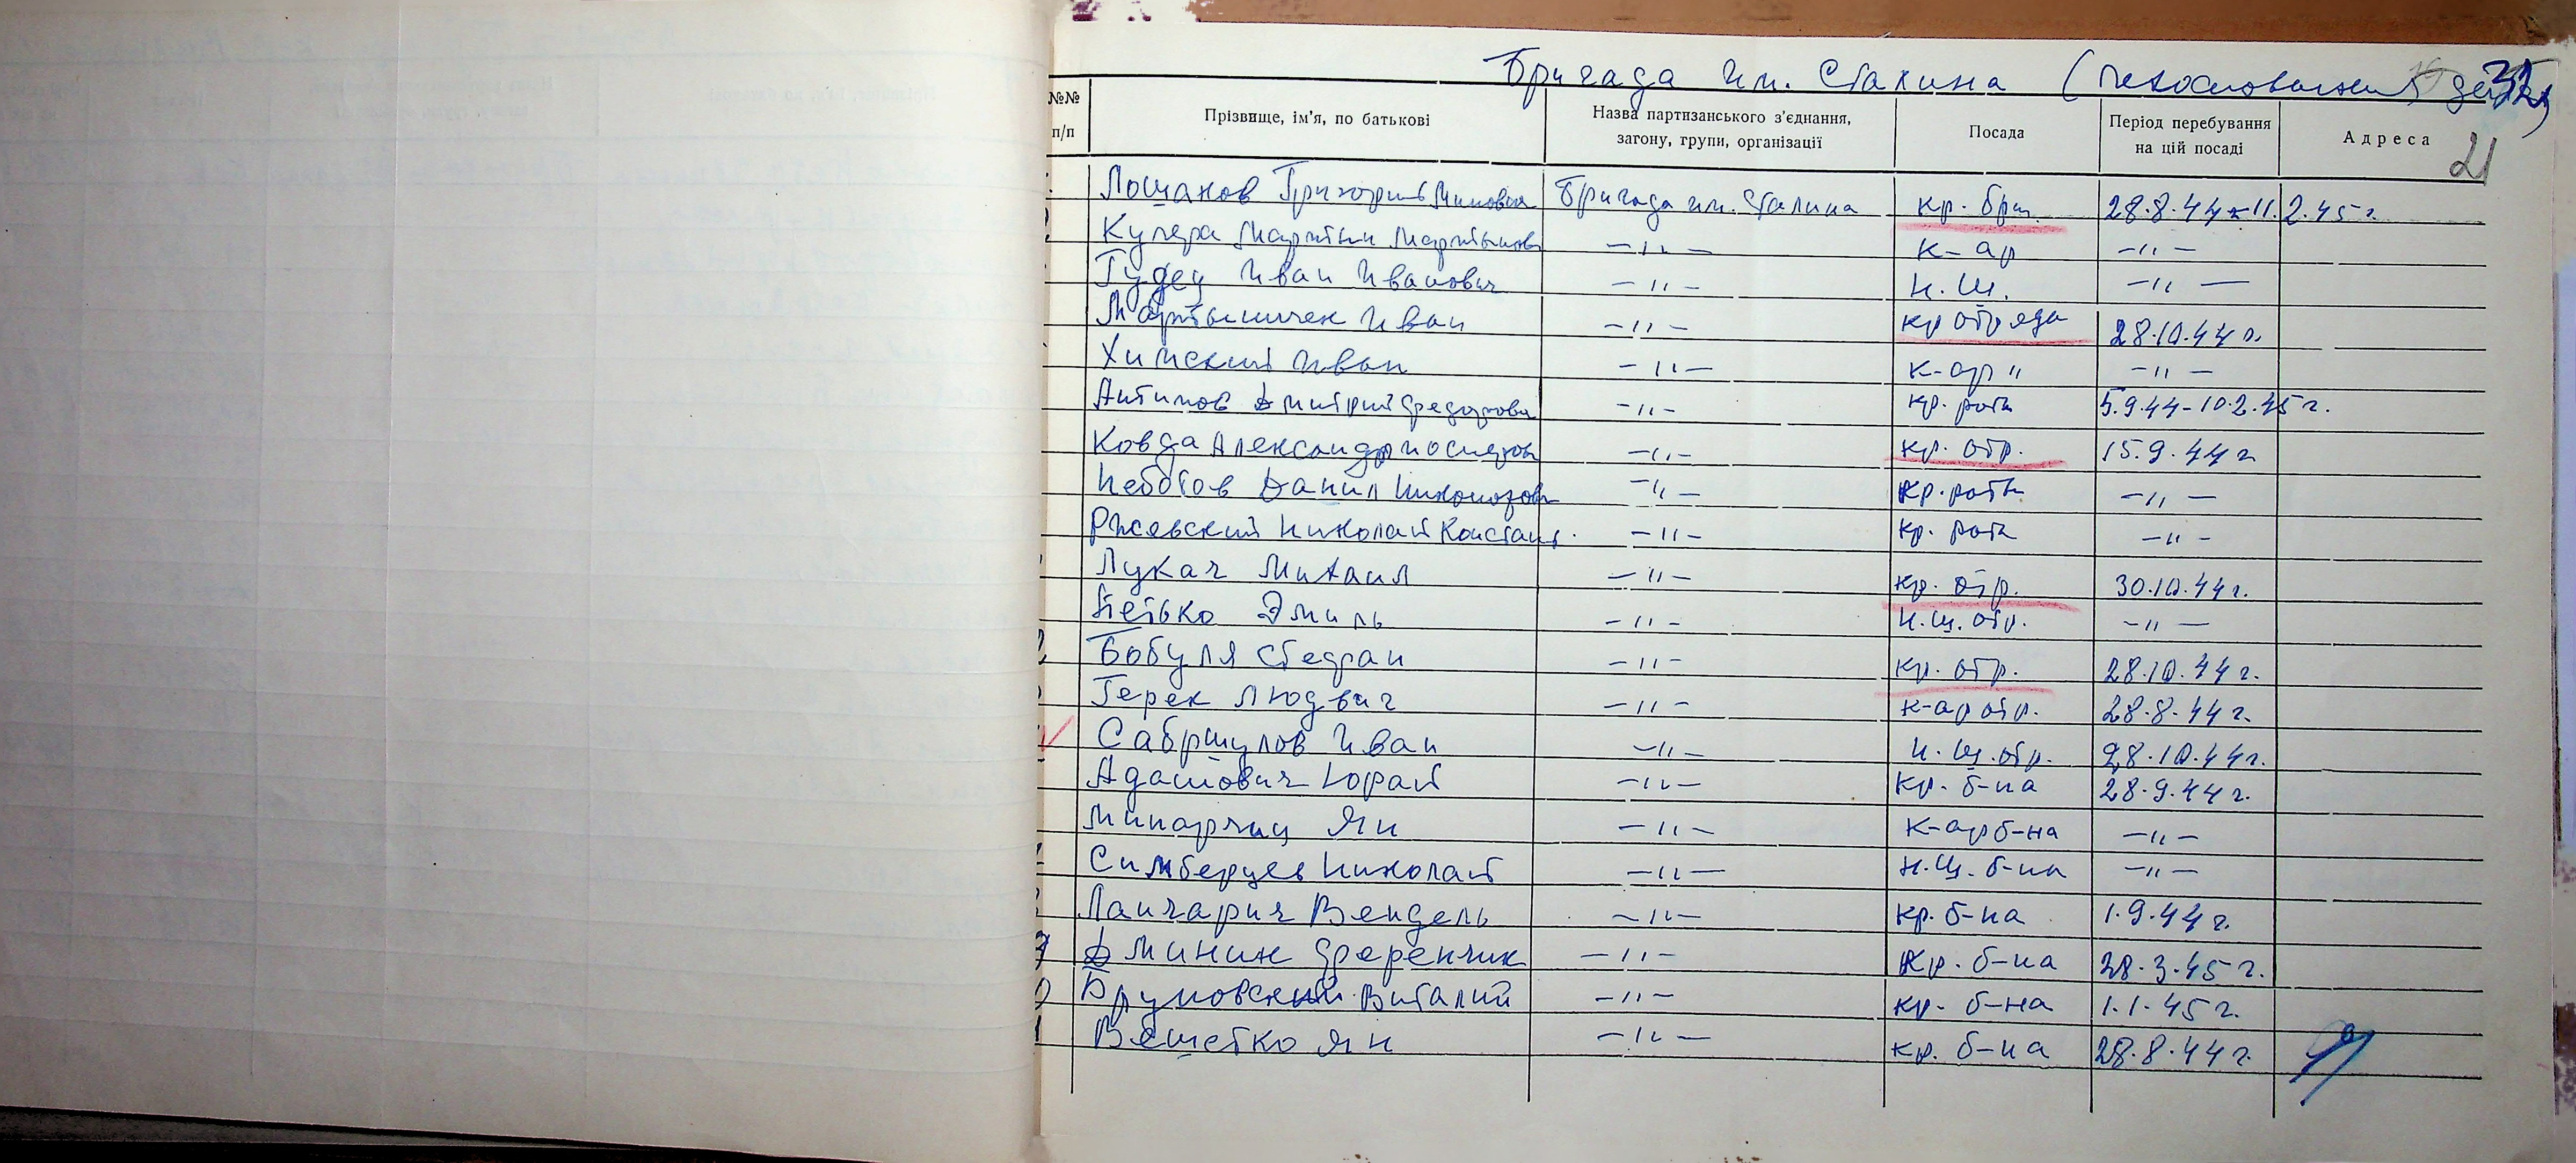 Бригада им. Сталина (
32
21
№№ п/п
Прізвище, ім'я, по батькові
Назва партизанського з'єднання, загону, групи, організації
Посада
Період перебування на цій посаді
Адреса
Лощанов Григорий Бригада им. Сталина кр. бриг. 28.8.44-11.2.45 г.
Кучера Мартин Мартынов -"- к-ар -"-
Гудец Иван Иванович -"- н.ш. -"-
Мартынчек Иван -"- кр отряда 28.10.44 г.
Химский Иван -"- к-ар " -"-
Антипов Дмитрий -"- кр. роты 5.9.44-10.2.45 г.
Ковда Александр Иосифов -"- кр. отр. 15.9.44 г.
Неботов Данил -"- кр. роты -"-
Ржевский Николай Констант. -"- кр. роты -"-
Лукач Михаил -"- кр. отр. 30.10.44 г.
Петько Эмиль -"- н.ш. отр. -"-
Бобуля Стефан -"- кр. отр. 28.10.44 г.
Герек Людвиг -"- к-ар отр. 28.8.44 г.
Сабршулов Иван -"- н.ш. отр. 28.10.44 г.
Адамович Юрай -"- кр. б-на 28.9.44 г.
Минарчиц Ян -"- к-ар б-на -"-
Симберцев Николай -"- н.ш. б-на -"-
Ланчарич Вендель -"- кр. б-на 1.9.44 г.
Дминик Ференчик -"- кр. б-на 28.3.45 г.
Бруновский Виталий -"- кр. б-на 1.1.45 г.
Вешетко Ян -"- кр. б-на 28.8.44 г.